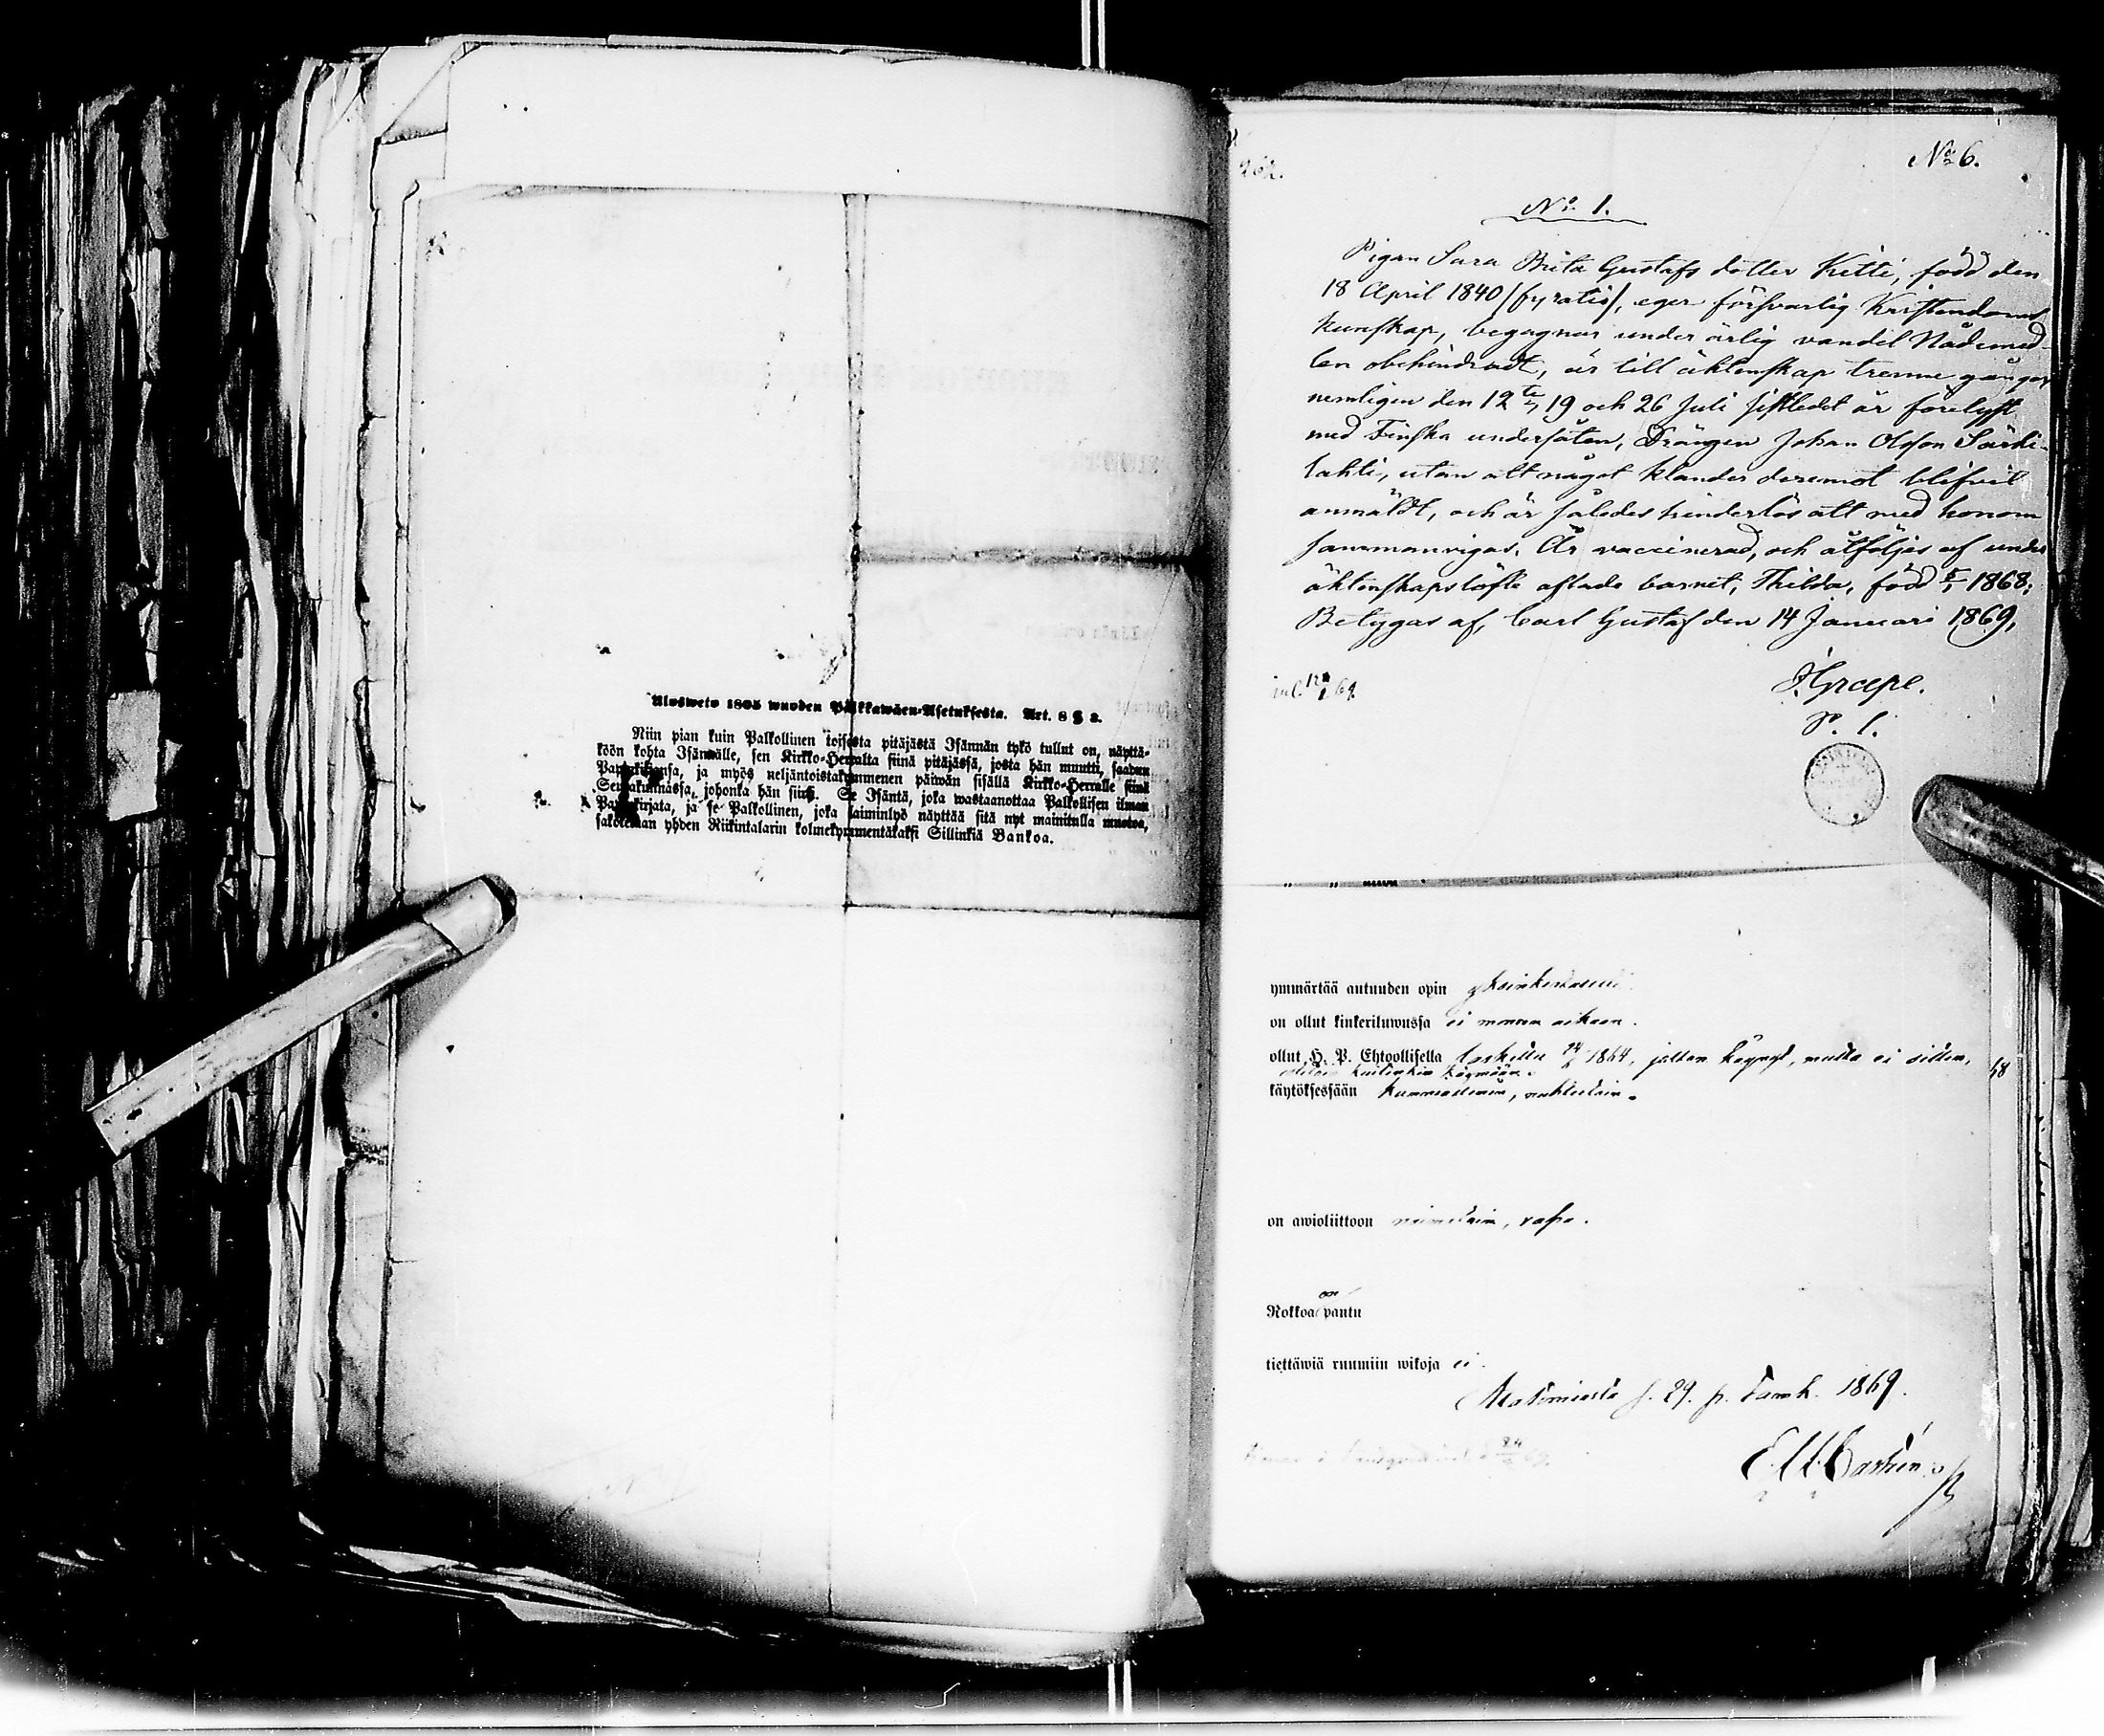 Ulosweto 1805 wuoden Palkkawäen-Asetuksesta. Art. 8 § 3.
Niin pian kuin Palkollinen toisesta pitäjästä Isännän tykö tullut on, näyttä-
köön kohta Isännälle, sen Kirkko-Herralta siinä pitäjässä, josta hän muutti, saadun
Papinkirjansa, ja myös neljäntoistakymmenen päiwän sisällä Kirkko-Herralle siinä
Seurakunnassa, johonka hän siirtyi. Se Isäntä, joka wastaanottaa Palkollisen ilman
Papinkirjata, ja se Palkollinen, joka laiminlyö näyttää sitä nyt mainitulla muotoa,
sakotetaan yhden Riikintalarin kolmekymmentäkaksi Sillinkiä Bankoa.
№ 6.
№ 1.
Pigan Sara Brita Gustafs dotter Kitti, född den
18 April 1840 /fyratio/, eger försvarlig Kristendoms
kunskap, begagnar under ärlig vandel Nådemed-
len obehindradt, är till äktenskap trenne gånger
nemligen den 12te, 19 och 26 Juli sistledet år förelyst
med Finska undersåten, Drängen Johan Olsson Särki-
lahti, utan att något klander deremot blifvit
anmäldt, och är således hinderlös att med honom
sammanvigas. Är vaccinerad, och åtföljes af under
äktenskapslöfte aflade barnet, Thilda, född 5/1 1868;
Betygas af, Carl Gustaf den 14 Januari 1869,
J. Grape.
P. l.
ymmärtää autuuden opin yksinkertaisesti
on ollut kinkeriluwussa ei moneen aikaan.
ollut H. P. Ehtoollisella 1864, mutta ei sitten,
käytöksessään kunniallinen, nuhteetoin.
on awioliittoon naimatoin, vapa.
Rokkoa on pantu
tiettäwiä ruumiin wikoja ei.
s. 29. p. Tamk. 1869.